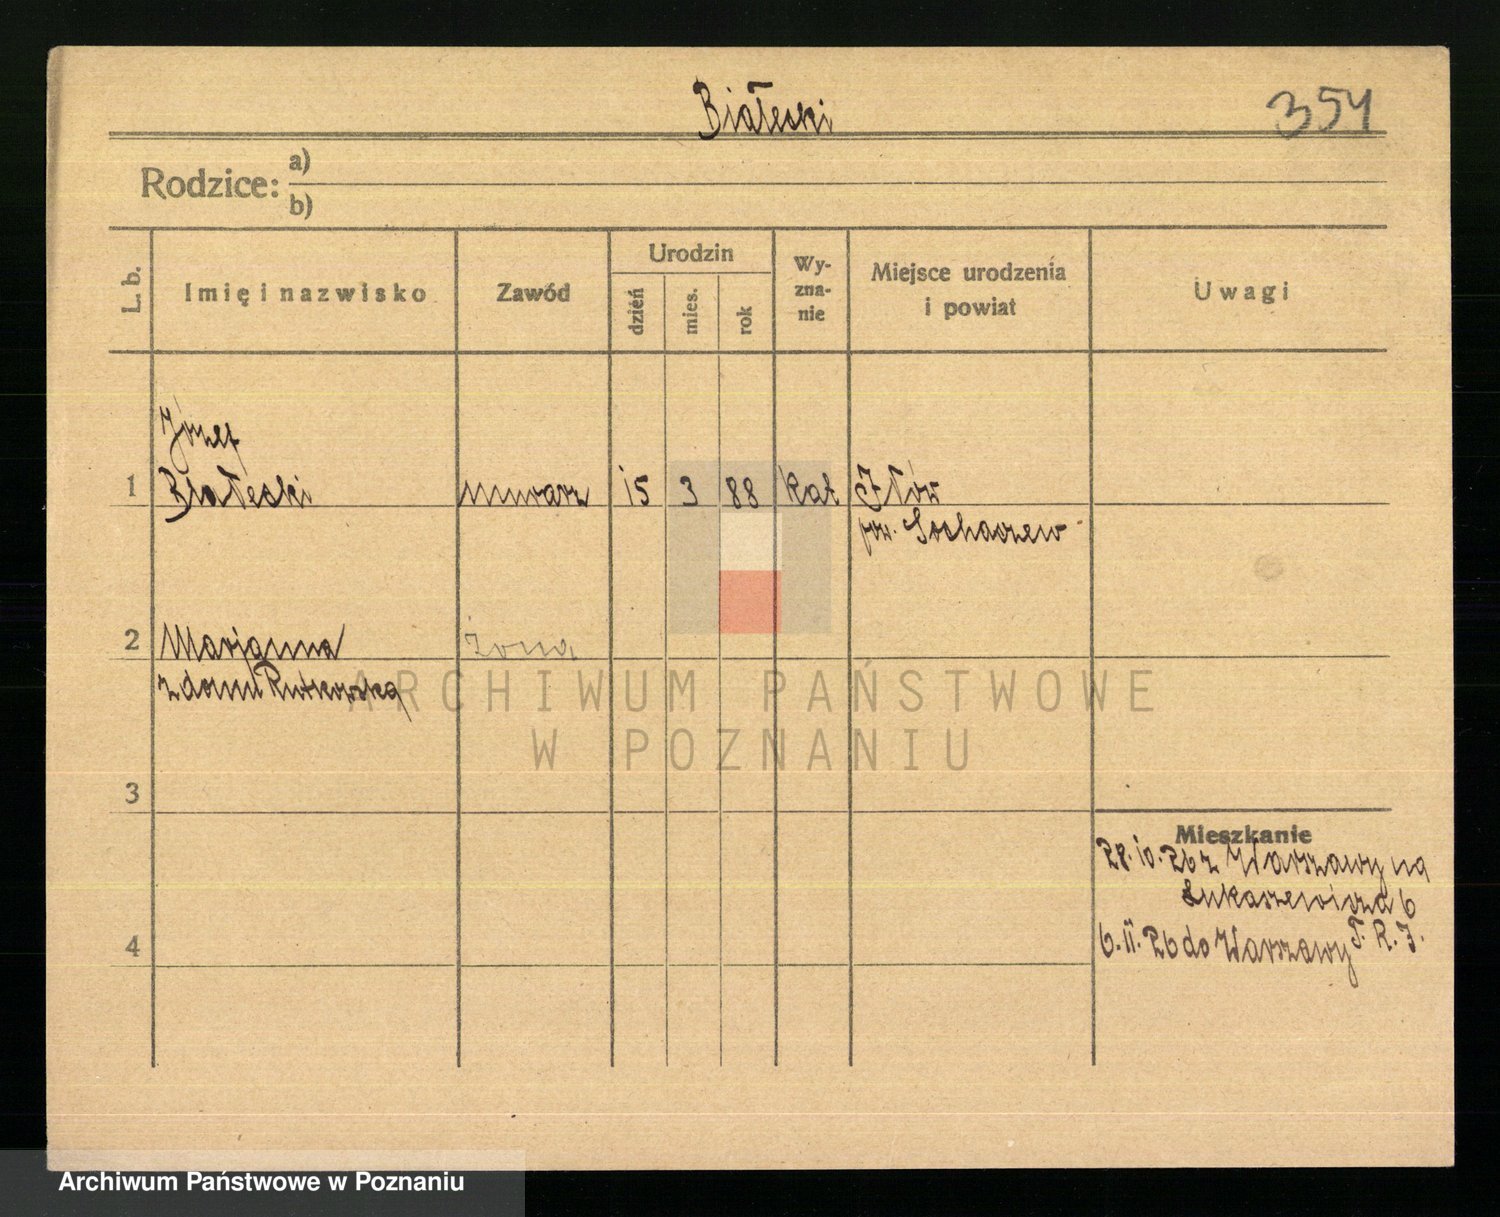 Białecki
354
Rodzice: a)
b)
L. b.
Imię i nazwisko
Zawód
Urodzin
dzień
mies.
rok
Wy-
zna-
nie
Miejsce urodzenia
i powiat
Uwagi
Józef
1 Białecki murarz 15 3 88 kat Iłów
pow. Sochaczew
2 Marjanna żona
z domu Rutkowska
3
4
Mieszkanie
28.10.26 z Warszawy na
Łukaszewicza 6
6.11.26 do Warszawy T. R. J.
ARCHIWUM PAŃSTWOWE
W POZNANIU
Archiwum Państwowe w Poznaniu